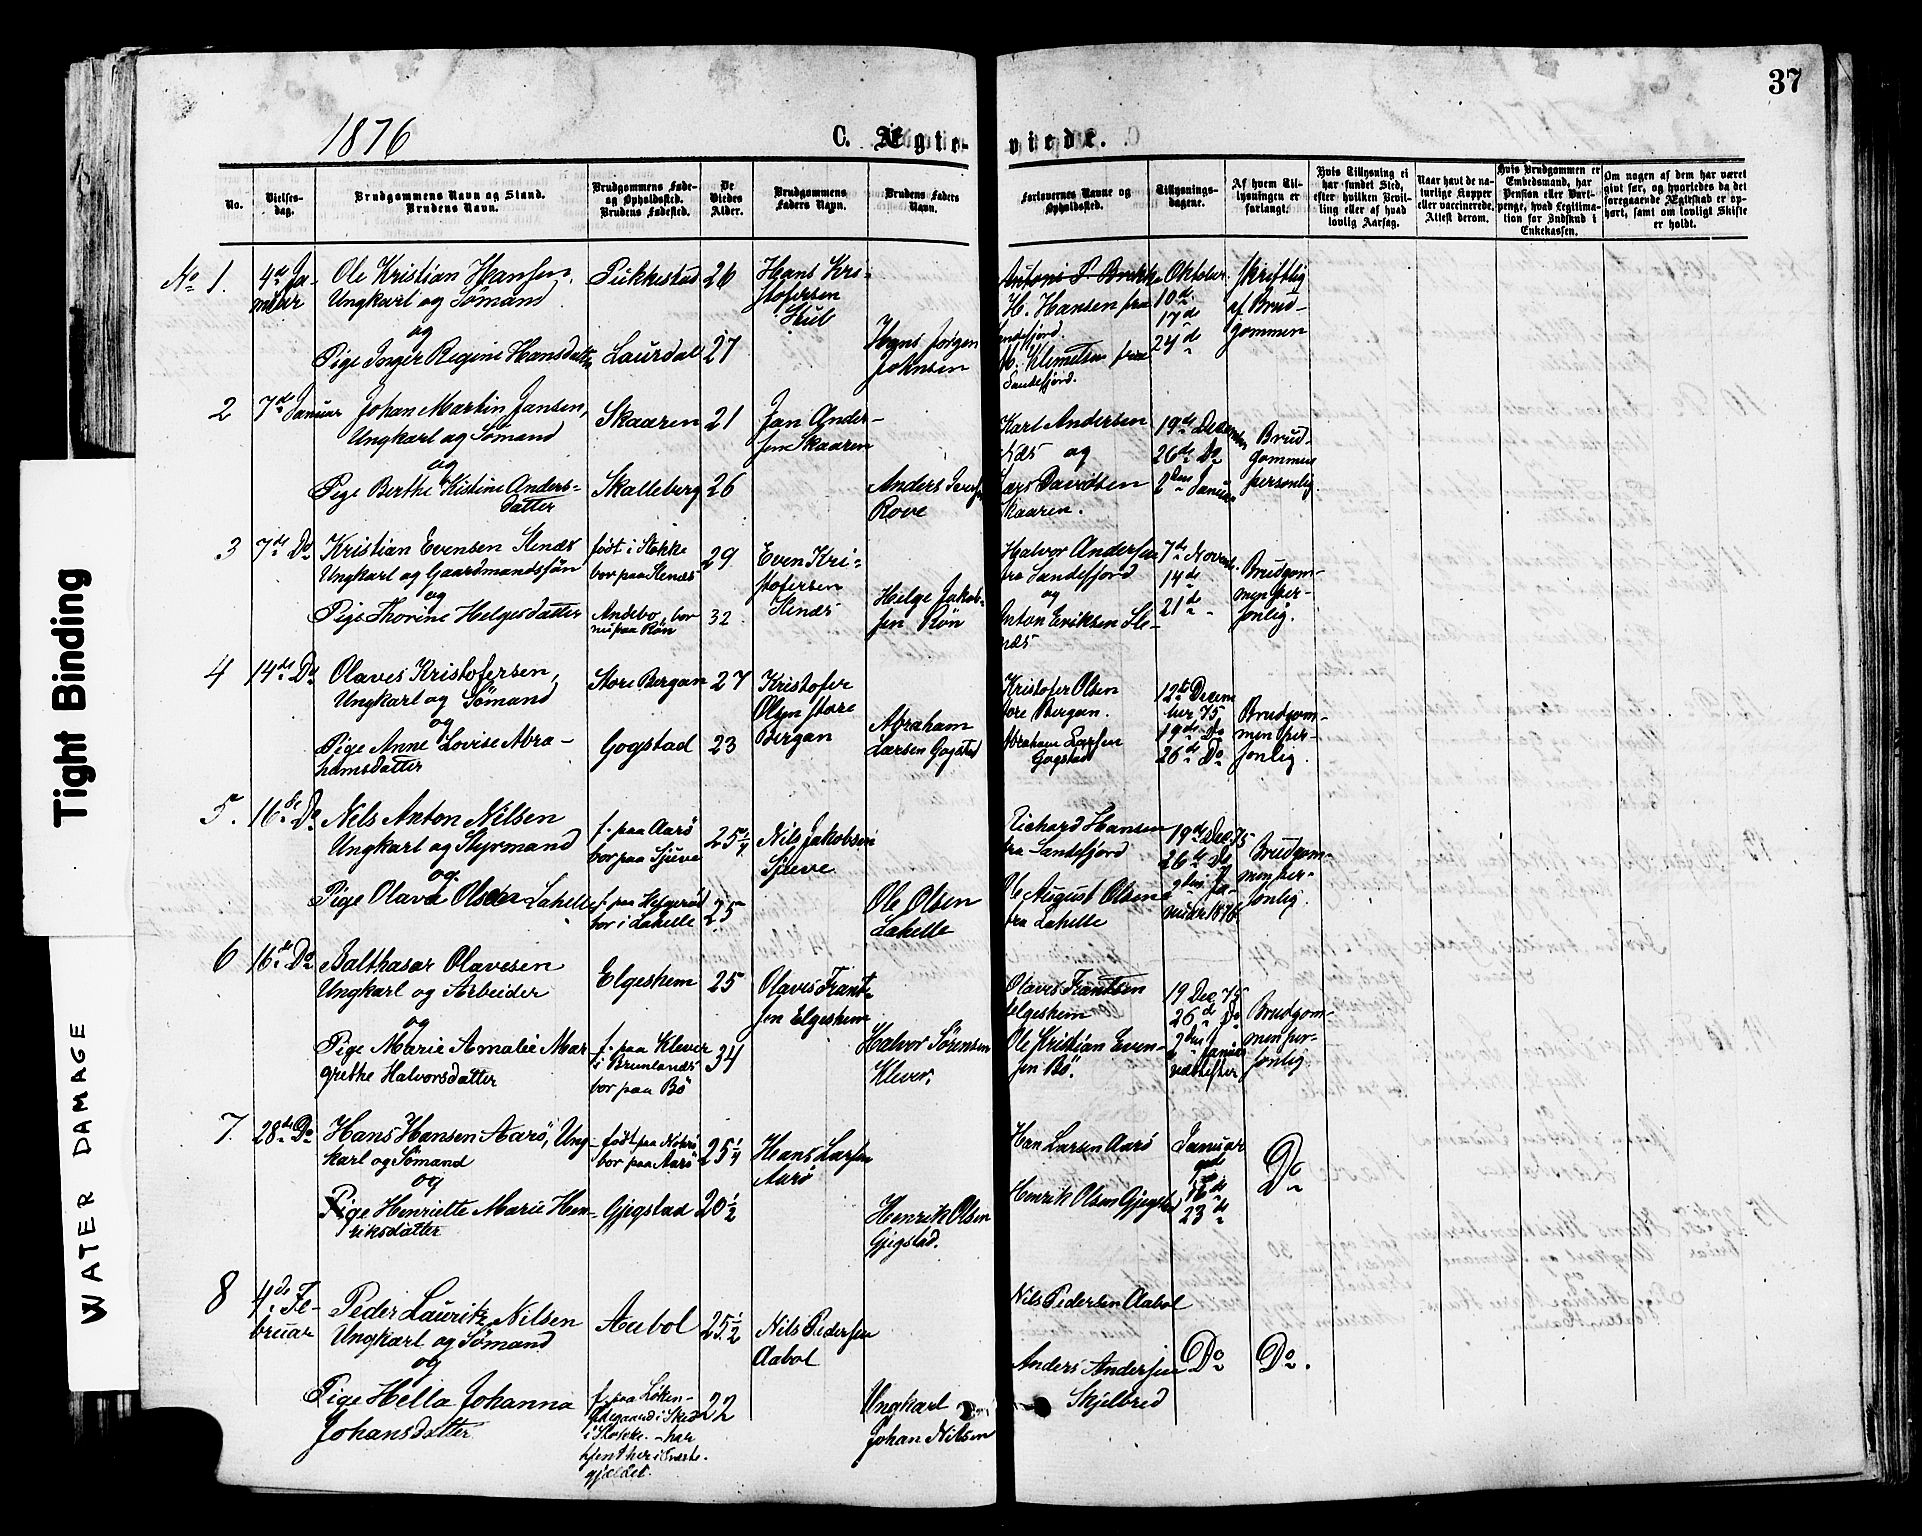 37
1876
C. Ægte-
viede.
No.
Vielses-
dag.
Brudgommens Navn og Stand.
Brudens Navn.
Brudgommens Føde-
og Opholdssted.
Brudens Fødested.
De
Viedes
Alder.
Brudgommens
Faders Navn.
Brudens Faders
Navn.
Forlovernes Navne og
Opholdssted.
Tillysnings-
dagene.
Af hvem Til-
lysningen er
forlangt.
Hvis Tillysning ei
har fundet Sted,
efter hvilken Bevil-
ling eller af hvad
lovlig Aarsag.
Naar havt de na-
turlige Kopper
eller vaccinerede,
Attest derom.
Hvis Brudgommen er
Embedsmand, har
Pension eller Vart-
penge, hvad Legitima-
tion for Indskud i
Enkekassen.
Om nogen af dem har været
givt før, og hvorledes da det
foregaaende Ægteskab er op-
hørt, samt om lovligt Skifte
er holdt.
No 1.
4de Ja-
nuar
Ole Kristian Hansen,
Ungkarl og Sømand
og
Pige Inger Regine Hansdatter
Pukkestad
Laurdal
26
27
Hans Kri-
stofersen
Hub
Hans Jørgen
Johnsen
Antoni P. Brekke
H. Hansen fra
Sandefjord.
M. Klemetsen fra
Sandefjord.
Oktober
10de
17de
24de
Skriftlig
af Brud-
gommen
2
7de Januar
Johan Martin Jansen,
Ungkarl og Sømand
og
Pige Berthe Kistine Anders-
datter
Skaaren
Skalleberg
21
26
Jan Ander-
sen Skaaren
Anders Iversen
Rove
Karl Andersen
Næs og
Lars Davidsen
Skaaren.
19de December
26de Do
2den Januar
Brud-
gommen
personlig.
3
7de Do
Kristian Evensen Stenæs
Ungkarl og Gaardmandssøn
og
Pige Thorine Helgesdatter
født i Stokke
bor paa Stenæs
Andebo, bor
nu paa Røn
29
32
Even Kri-
stofersen
Stenæs
Helge Jakob-
sen Røn
Halvor Andersen
fra Sandefjord
og
Anton Eriksen Ste-
næs
7de Novem.
14de
21de
Brudgom-
men per-
sonlig.
4
14de Do
Olaves Kristofersen,
Ungkarl og Sømand
og
Pige Anne Lovise Abra-
hamsdatter
Store Bergan
Gogstad
27
23
Kristofer
Olsen store
Bergan
Abraham
Larsen Gogstad
Kristofer Olsen
store Bergan.
Abraham Larsen
Gogstad
12te Decem
ber 75
19de Do
26de Do
Brudgom-
men per-
sonlig.
5.
16de Do
Nils Anton Nilsen
Ungkarl og Styrmand
og
Pige Olava Olsen Lahelle
f. paa Aarø
bor paa Sjuve
f. paa Hegerød
bor i Lahelle
25 1/4
25
Nils Jakobsen
Sjueve
Ole Olsen
Lahelle
Richard Hansen
fra Sandefjord
Ole August Olsen
fra Lahelle
19de Dec 75
26de Do
2den Ja-
nuar 1876
Brudgom-
men per-
sonlig.
6
16de Do
Balthasar Olavesen
Ungkarl og Arbeider
og
Pige Marie Amalie Mar
grethe Halvorsdatter
Elgeshem
f. paa Klever
i Brunlanæs
bor paa Bø
25
34
Olaves Frant-
sen Elgeshem
Halvor Sørensen
Klever.
Olaves Frantsen
Elgeshem
Ole Kristian Even-
sen Bø.
19 Dec 75
26de Do
2den Januar
næstefter
Brudgom-
men per-
sonlig.
7.
28de Do
Hans Hansen Aarø, Ung-
karl og Sømand
og
Pige Henriette Marie Hen-
riksdatter
bor paa Aarø
Gjegstad
25 1/4
20 1/2
Hans Larsen
Aarø
Henrik Olsen
Gjegstad.
Han Larsen Aarø
Henrik Olsen Gjegstad
Januar
9de
16de
23de
Do
8
4de Fe-
bruar
Peder Lauritz Nilsen
Ungkarl og Sømand
og
Pige Hella Johanna
Johansdatter
Aabol
f. paa Løken-
ødegaard i Skee
i Stokke. - har
tjent her i Præste-
gjældet.
25 1/2
22
Nils Pedersen
Aabol
Ungkarl
Johan Nilsen
Nils Pedersen Aabol
Anders Andersen
Skjelbred
Do
Do.
Tight Binding
WATER DAMAGE